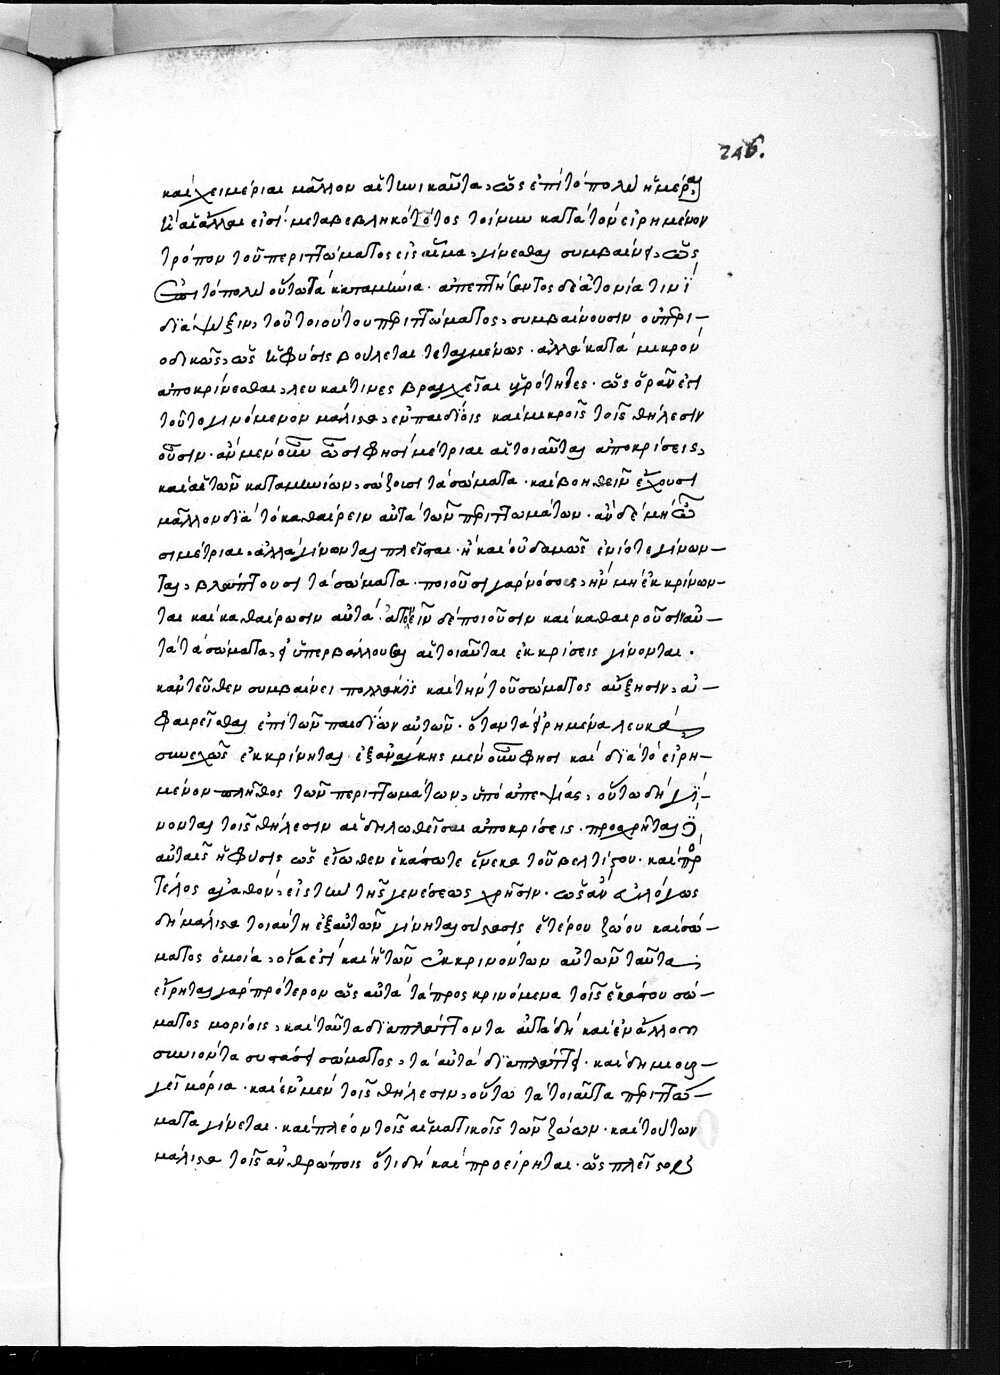 246.
καὶ χειμέριαι μᾶλλον αἱ τῳνικαῦτα, ὡς ἐπιτοπολὺ ἡμέραι
ἢ αἱ ἄλλαι εἰσί· μεταβεβληκότοτος τοίνυν κατὰ τὸν εἰρημένον
τρόπον τοῦ περιττώματος εἰς αἷμα, γίνεσθαι συμβαίνει, ὡς
ἐπιτοπολὺ οὕτω τὰ καταμήνια· ἀπεπτήσαντος δὲ ἀτονία τινὶ
διὰ ψῦξιν, τοῦ τοιούτου περιττώματος, συμβαίνουσιν οὐ περι-
οδικῶς, ὡς ἡ φύσις βούλεται τεταγμένως· ἀλλὰ κατὰ μικρὸν
ἀποκρίνεσθαι, λευκαί τινες βραχεῖαι ὑγρότητες· ὡς ὁρᾶν ἐστὶ
τοῦτο γινόμενον μάλιστα, ἐν παιδίοις καὶ μικροῖς τοῖς θήλεσιν
οὖσιν· ἂν μὲν οὖν ὦσι φησὶ μέτριαι αἱ τοιαῦται ἀποκρίσεις,
καὶ αἱ τῶν καταμηνίων, σώζουσι τὰ σώματα· καὶ βοηθεῖν ἔχουσι
μᾶλλον διὰ τὸ καθαίρειν αὐτὰ τῶν περιττωμάτων· ἂν δὲ μὴ ὦ
σι μέτριαι, ἀλλὰ γίνονται πλεῖσαι· ἢ καὶ οὐδαμῶς ἐνίοτε γίνων-
ται, βλάπτουσι τὰ σώματα· ποιοῦσι γὰρ νόσους, ἢν μὴ ἐκκρίνων-
ται καὶ καθαίρωσιν αὐτά· ἀτοεῖν δὲ ποιοῦσιν καὶ καθαιροῦσιν αὐ-
τὰ τὰ σώματα, εἰ ὑπερβάλλουσαι αἱ τοιαῦται ἐκκρίσεις γίνονται·
κἀντεῦθεν συμβαίνει πολλάκις καὶ τὴν τοῦ σώματος αὔξησιν, ἀ-
φαιρεῖσθαι ἐπὶ τῶν παιδίων αὐτῶν· ὅταν τὰ εἰρημένα λευκὰ
συνεχῶς ἐκκρίνηται· ἐξανάγκης μὲν οὖν φησὶ καὶ διὰ τὸ εἰρη-
μένον πλῆθος τῶν περιττωμάτων, ὑπὸ ἀπεψίας, οὕτω δὴ γί-
νονται τοῖς θήλεσιν αἱ δηλωθεῖσαι ἀποκρίσεις· προσχρῆται δὲ
αὐταῖς ἡ φύσις ὡς εἴωθεν ἑκάστοτε ἕνεκα τοῦ βελτίονος· καὶ πρὸς
τέλος ἀγαθόν, εἰς τὴν τῆς γενέσεως χρῆσιν· ὡς ἂν εὐλόγως
δὴ μάλιστα τοιαύτη ἐξ αὐτῶν γίνηται σύστασις ἑτέρου ζώου καὶ σώ-
ματος ὁμοία, οἵα ἐστὶ καὶ ἡ τῶν ἐκκρινόντων αὐτῶν ταῦτα,
εἴρηται γὰρ πρότερον ὡς αὐτὰ τὰ προσκρινόμενα τοῖς ἑκάστου σώ-
ματος μορίοις, καὶ ταῦτα διαπλάττοντα αὐτὰ δὴ καὶ ἐν ἄλλου
συνιόντα συστάσει σώματος, τὰ αὐτὰ διαπλάττει· καὶ δημιουρ-
γεῖ μόρια· καὶ ἐν μὲν τοῖς θήλεσιν, οὕτω τὰ τοιαῦτα περιττώ-
ματα γίνεται· καὶ πλέον τοῖς αἱματικοῖς τῶν ζώων· καὶ τούτων
μάλιστα τοῖς ἀνθρώποις ὅτι δὴ καὶ προείρηται· ὡς πλεῖστον